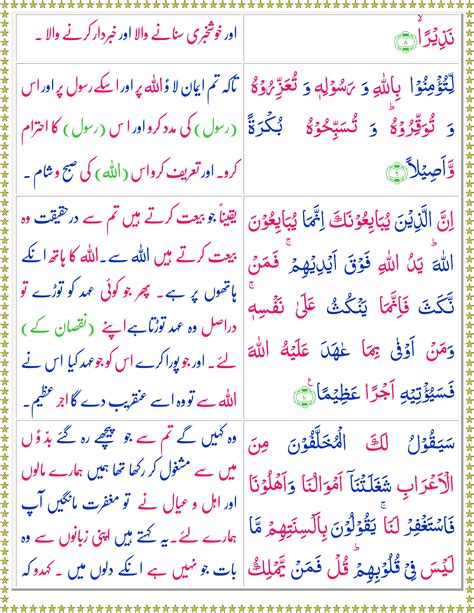 نَذِيْرًا ۙ‏﴿۸﴾
اور خوشخبری سنانے والا اور خبردار کرنے والا ۔
لِّتُؤْمِنُوْا بِاللّٰهِ وَ رَسُوْلِهٖ وَ تُعَزِّرُوْهُ
وَ تُوَقِّرُوْهُ ؕ وَ تُسَبِّحُوْهُ بُكْرَةً
وَّاَصِيْلًا ﴿۹﴾
تاکہ تم ایمان لاؤ اللہ پر اور اسکے رسول پر اور اس
(رسول) کی مدد کرو اور اس (رسول) کا احترام
کرو۔ اور تعریف کرو اس (اللہ) کی صبح و شام ۔
اِنَّ الَّذِيْنَ يُبَايِعُوْنَكَ اِنَّمَا يُبَايِعُوْنَ
اللّٰهَ ؕ يَدُ اللّٰهِ فَوْقَ اَيْدِيْهِمْ ۚ فَمَنْ
نَّكَثَ فَاِنَّمَا يَنْكُثُ عَلٰى نَفْسِهٖ ۚ
وَمَنْ اَوْفٰى بِمَا عٰهَدَ عَلَيْهُ اللّٰهَ
فَسَيُؤْتِيْهِ اَجْرًا عَظِيْمًا ﴿۱۰﴾
یقیناً جو بیعت کرتے ہیں تم سے درحقیقت وہ
بیعت کرتے ہیں اللہ سے۔ اللہ کا ہاتھ انکے
ہاتھوں پر ہے۔ پھر جو کوئی عہد کو توڑے تو
دراصل وہ عہد توڑتا ہے اپنے (نقصان کے)
لئے۔ اور جو پورا کرے اس کو جو عہد کیا اس نے
اللہ سے تو وہ اسے عنقریب دے گا اجر عظیم۔
سَيَقُوْلُ لَكَ الْمُخَلَّفُوْنَ مِنَ
الْاَعْرَابِ شَغَلَتْنَاۤ اَمْوَالُنَا وَ اَهْلُوْنَا
فَاسْتَغْفِرْ لَنَا ۚ يَقُوْلُوْنَ بِاَلْسِنَتِهِمْ مَّا
لَيْسَ فِىْ قُلُوْبِهِمْ ؕ قُلْ فَمَنْ يَّمْلِكُ
وہ کہیں گے تم سے جو پیچھے رہ گئے بدّوؤں
میں سے مشغول کر رکھا تھا ہمیں ہمارے مالوں
اور اہل و عیال نے تو مغفرت مانگیں آپ
ہمارے لئے۔ یہ کہتے ہیں اپنی زبانوں سے وہ
بات جو نہیں ہے انکے دلوں میں ۔ کہدو کہ